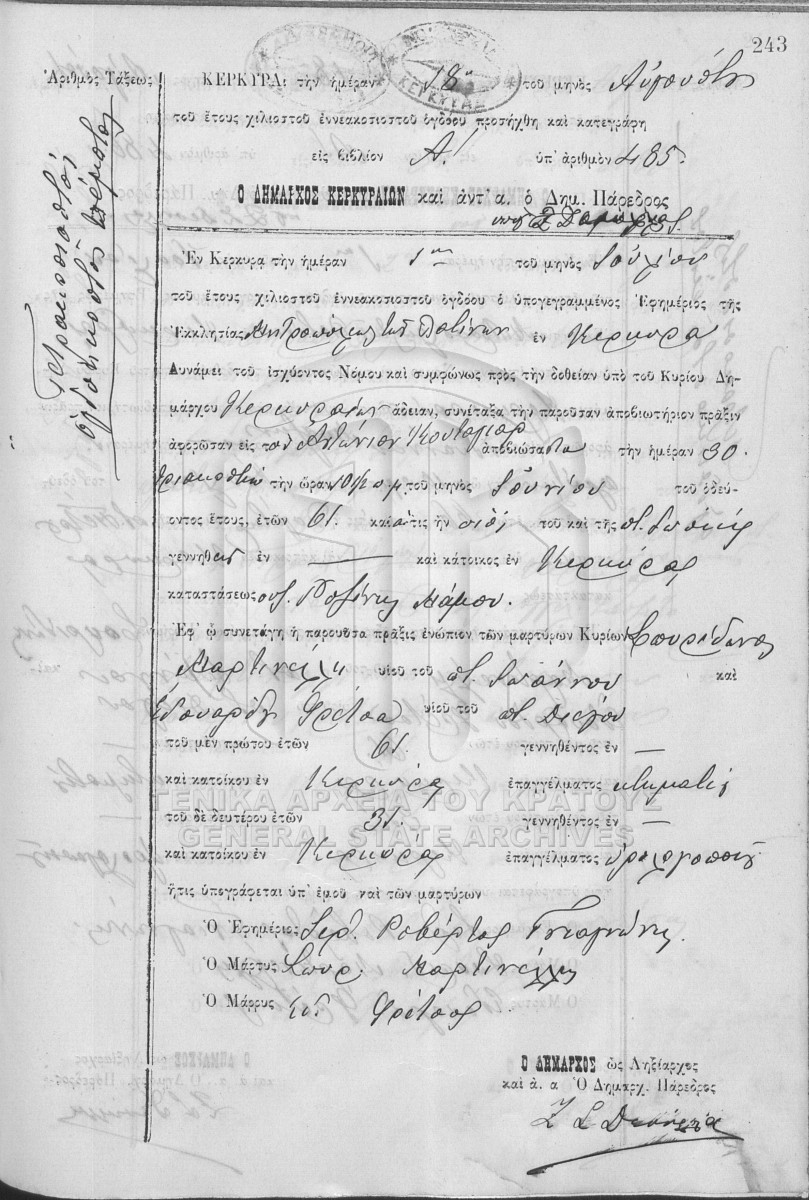 243
Ἀριθμὸς Τάξεως
Τετρακοσιοστός
ὀγδοηκοστός πέμπτος
ΚΕΡΚΥΡΑ: τὴν ἡμέραν 18ην τοῦ μηνὸς Αὐγούστου
τοῦ ἔτους χιλιοστοῦ ἐννεακοσιοστοῦ ὀγδόου προσήχθη καὶ κατεγράφη
εἰς βιβλίον Α' ὑπ' ἀριθμὸν 485.
Ὁ ΔΗΜΑΡΧΟΣ ΚΕΡΚΥΡΑΙΩΝ καὶ ἀντ' α. ὁ Δημ. Πάρεδρος
Ἐν Κερκυρᾳ τὴν ἡμέραν 1ην τοῦ μηνὸς Ἰουλίου
τοῦ ἔτους χιλιοστοῦ ἐννεακοσιοστοῦ ὀγδόου ὁ ὑπογεγραμμένος Ἐφημέριος τῆς
Ἐκκλησίας Μητροπόλεως τῶν Λατίνων ἐν Κερκύρᾳ
Δυνάμει τοῦ ἰσχύοντος Νόμου καὶ συμφώνως πρὸς τὴν δοθεῖσαν ὑπὸ τοῦ Κυρίου Δη-
μάρχου Κερκυραίων ἄδειαν, συνέταξα τὴν παροῦσαν ἀποβιωτήριον πρᾶξιν
ἀφορῶσαν εἰς τὸν Ἀντώνιον Κουταγιαρ ἀποβιώσαντα τὴν ἡμέραν 30
τριακοστὴν τὴν ὥραν 10½ π.μ. τοῦ μηνὸς Ἰουνίου τοῦ ὁδεύ-
οντος ἔτους, ἐτῶν 61. καὶ ὅστις ἦν υἱὸς τοῦ καὶ τῆς π. Ἰωσὴφ
γεννηθεὶς ἐν — καὶ κάτοικος ἐν Κερκύρας
καταστάσεως συζ. Ροζίνης Μάμου.
Ἐφ' ᾧ συνετάγη ἡ παροῦσα πρᾶξις ἐνώπιον τῶν μαρτύρων Κυρίων Σπυρίδωνος
Μαρτινέλλη υἱοῦ τοῦ π. Ἰωάννου καὶ
Ἐδουάρδου Φρέτσα υἱοῦ τοῦ π. Διέγου
τοῦ μὲν πρώτου ἐτῶν 61. γεννηθέντος ἐν —
καὶ κατοίκου ἐν Κερκύρᾳ ἐπαγγέλματος κτηματίας
τοῦ δὲ δευτέρου ἐτῶν 31. γεννηθέντος ἐν —
καὶ κατοίκου ἐν Κερκύρᾳ ἐπαγγέλματος ὡρολογοποιοῦ
ἥτις ὑπογράφεται ὑπ' ἐμοῦ καὶ τῶν μαρτύρων
Ὁ Ἐφημέριος Ἱερ. Ροβέρτος
Ὁ Μάρτυς Σπυρ. Μαρτινέλλης
Ὁ Μάρρυς Ἐδ. Φρέτσας
Ὁ ΔΗΜΑΡΧΟΣ ὡς Ληξίαρχος
καὶ ἀ. α Ὁ Δημαρχ. Πάρεδρος
ΓΕΝΙΚΑ ΑΡΧΕΙΑ ΤΟΥ ΚΡΑΤΟΥΣ
GENERAL STATE ARCHIVES